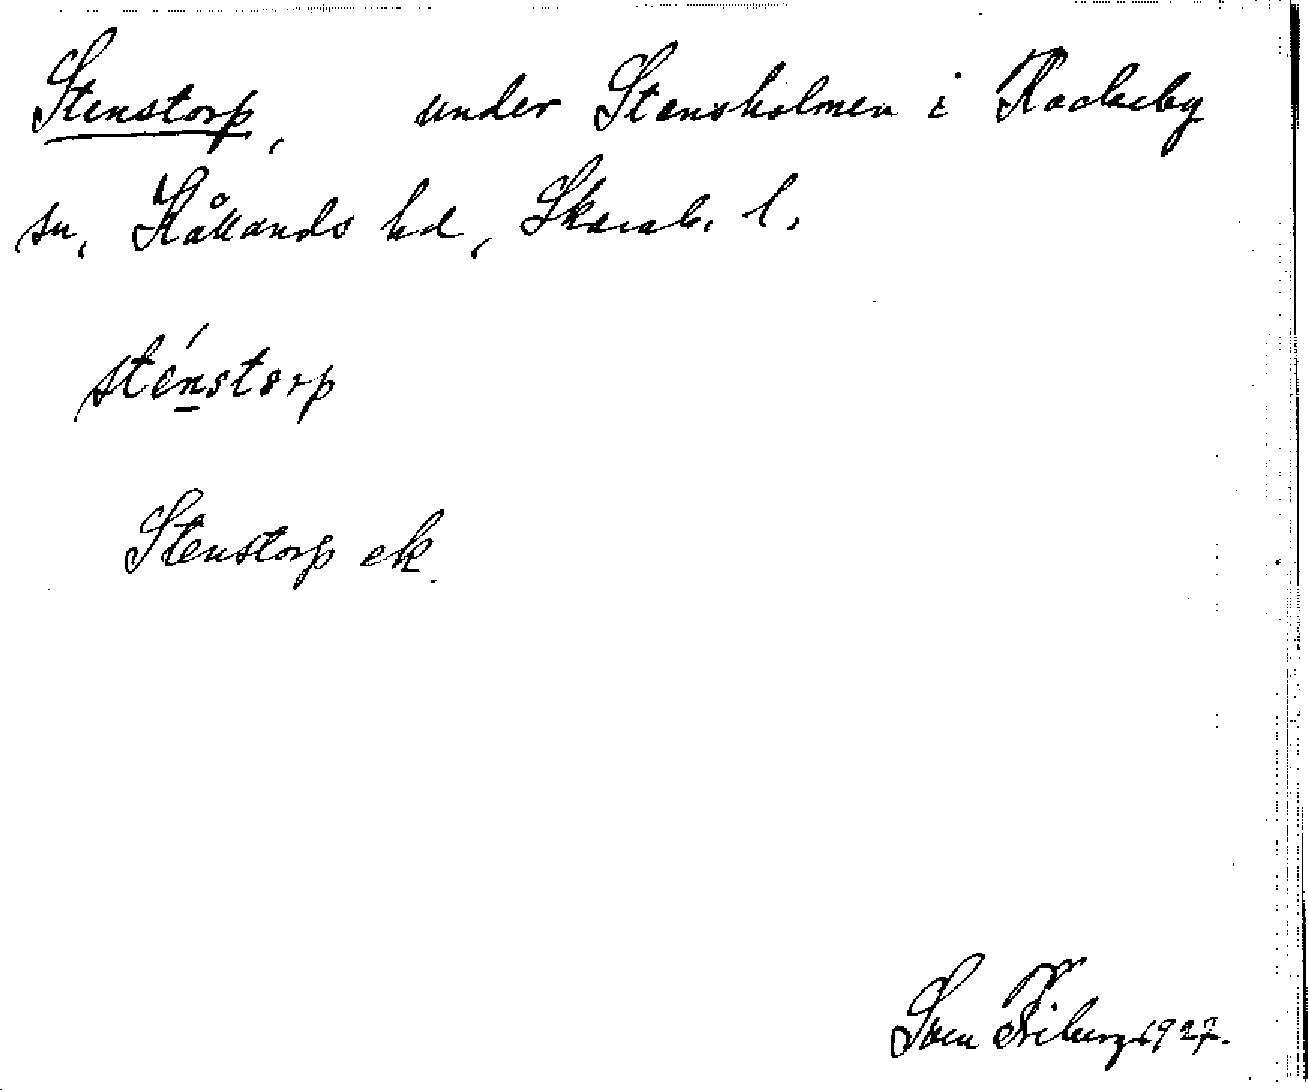 Stenstorp, under Stensholmen i Rackeby
sn, Kållands hd, Skarab. l.
sténstorp
Stenstorp ek.
Sven Friberg 1927.